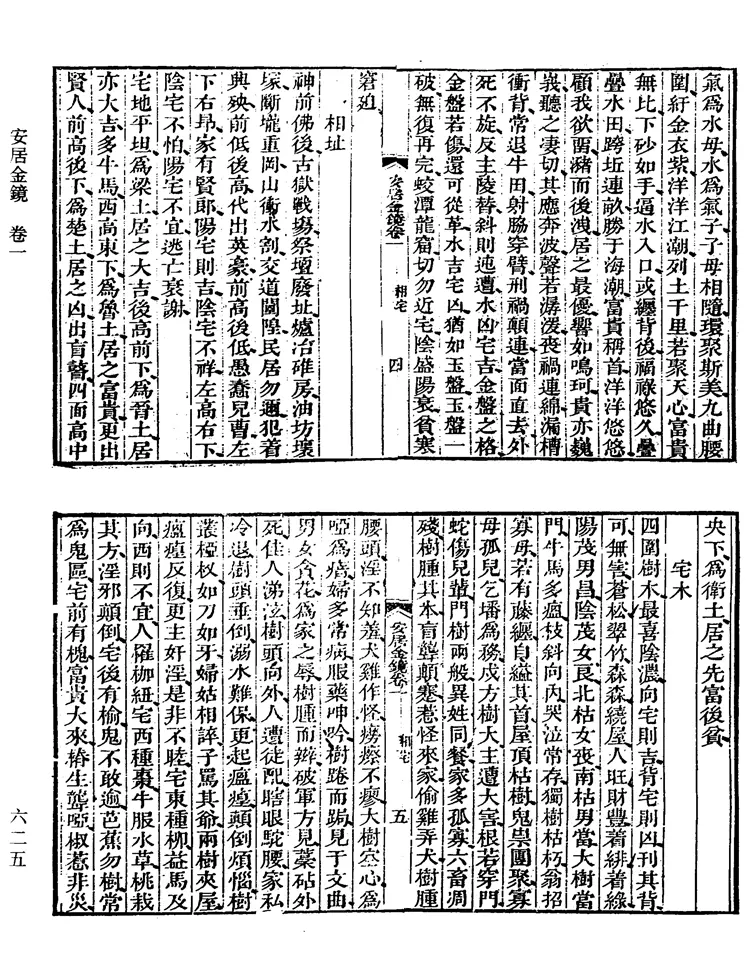 安居金鏡 卷一
六二五
氣爲水母水爲氣子子母相隨環聚斯美九曲腰
圍紆金衣紫洋洋江潮列土千里若聚天心富貴
無比下砂如手逼水入口或纏背後福祿悠久疊
疊水田跨近連畝勝于海潮富貴稱首洋洋悠悠
顧我欲畱瀦而後洩居之最優響如鳴珂貴亦巍
峩聽之凄切其應奔波聲若潺湲喪禍連綿漏槽
衝背常退牛田射脇穿臂刑禍顛連當面直去外
死不旋反主陵替斜則迍邅水凶宅吉金盤之格
金盤若傷還可從革水吉宅凶猶如玉盤玉盤一
破無復再完蛟潭龍窟切勿近宅陰盛陽衰貧寒
安居金鏡卷一 相宅 四
窘廹
相址
神前佛後古獄戰塲祭壇廢址爐冶碓房油坊壞
塚斷壠重岡山衝水割交道闤隍民居勿邇犯着
典殃前低後高代出英豪前高後低愚蠢兒曹左
下右昂家有賢郎陽宅則吉陰宅不祥左高右下
陰宅不怕陽宅不宜逃亡衰謝
宅地平坦爲梁土居之大吉後高前下爲晉土居
亦大吉多牛馬西高東下爲魯土居之富貴更出
賢人前高後下爲楚土居之凶出盲瞽四面高中
央下爲衛土居之先富後貧
宅木
四圍樹木最喜陰濃向宅則吉背宅則凶刊其背
可無害蒼松翠竹森森繞屋人旺財豐着緋着綠
陽茂男昌陰茂女良北枯女喪南枯男當大樹當
門牛馬多瘟枝斜向內哭泣常存獨樹枯杇翁招
寡母若有藤纏自縊其首屋頂枯樹鬼祟團聚寡
母孤兒乞墦爲務戍方樹大主遭大害根若穿門
蛇傷兒輩門樹兩般異姓同餐家多孤寡六畜凋
殘樹腫其本盲聾顛蹇惹怪來家偷雞弄犬樹腫
安居金鏡卷一 相宅 五
腰頭淫不知羞犬雞作怪癆瘵不瘳大樹空心爲
啞爲瘖婦多常病服藥呻吟樹踡而跼見于文曲
男女貪花爲家之辱樹腫而辮破軍方見藥砧外
死佳人涕泣樹頭向外人遭徒配瞎眼駝腰家私
冷退樹頭垂倒溺水難保更起瘟㾮顛倒煩惱樹
叢椏杈如刀如牙婦姑相誶子罵其爺兩樹夾屋
瘟㾮反復更主奸淫是非不睦宅東種柳益馬及
向西則不宜人羅枷紐宅西種棗牛服水草桃栽
其方淫邪顛倒宅後有榆鬼不敢逾芭蕉勿樹常
爲鬼區宅前有槐富貴大來椿生聾啞椒惹非災